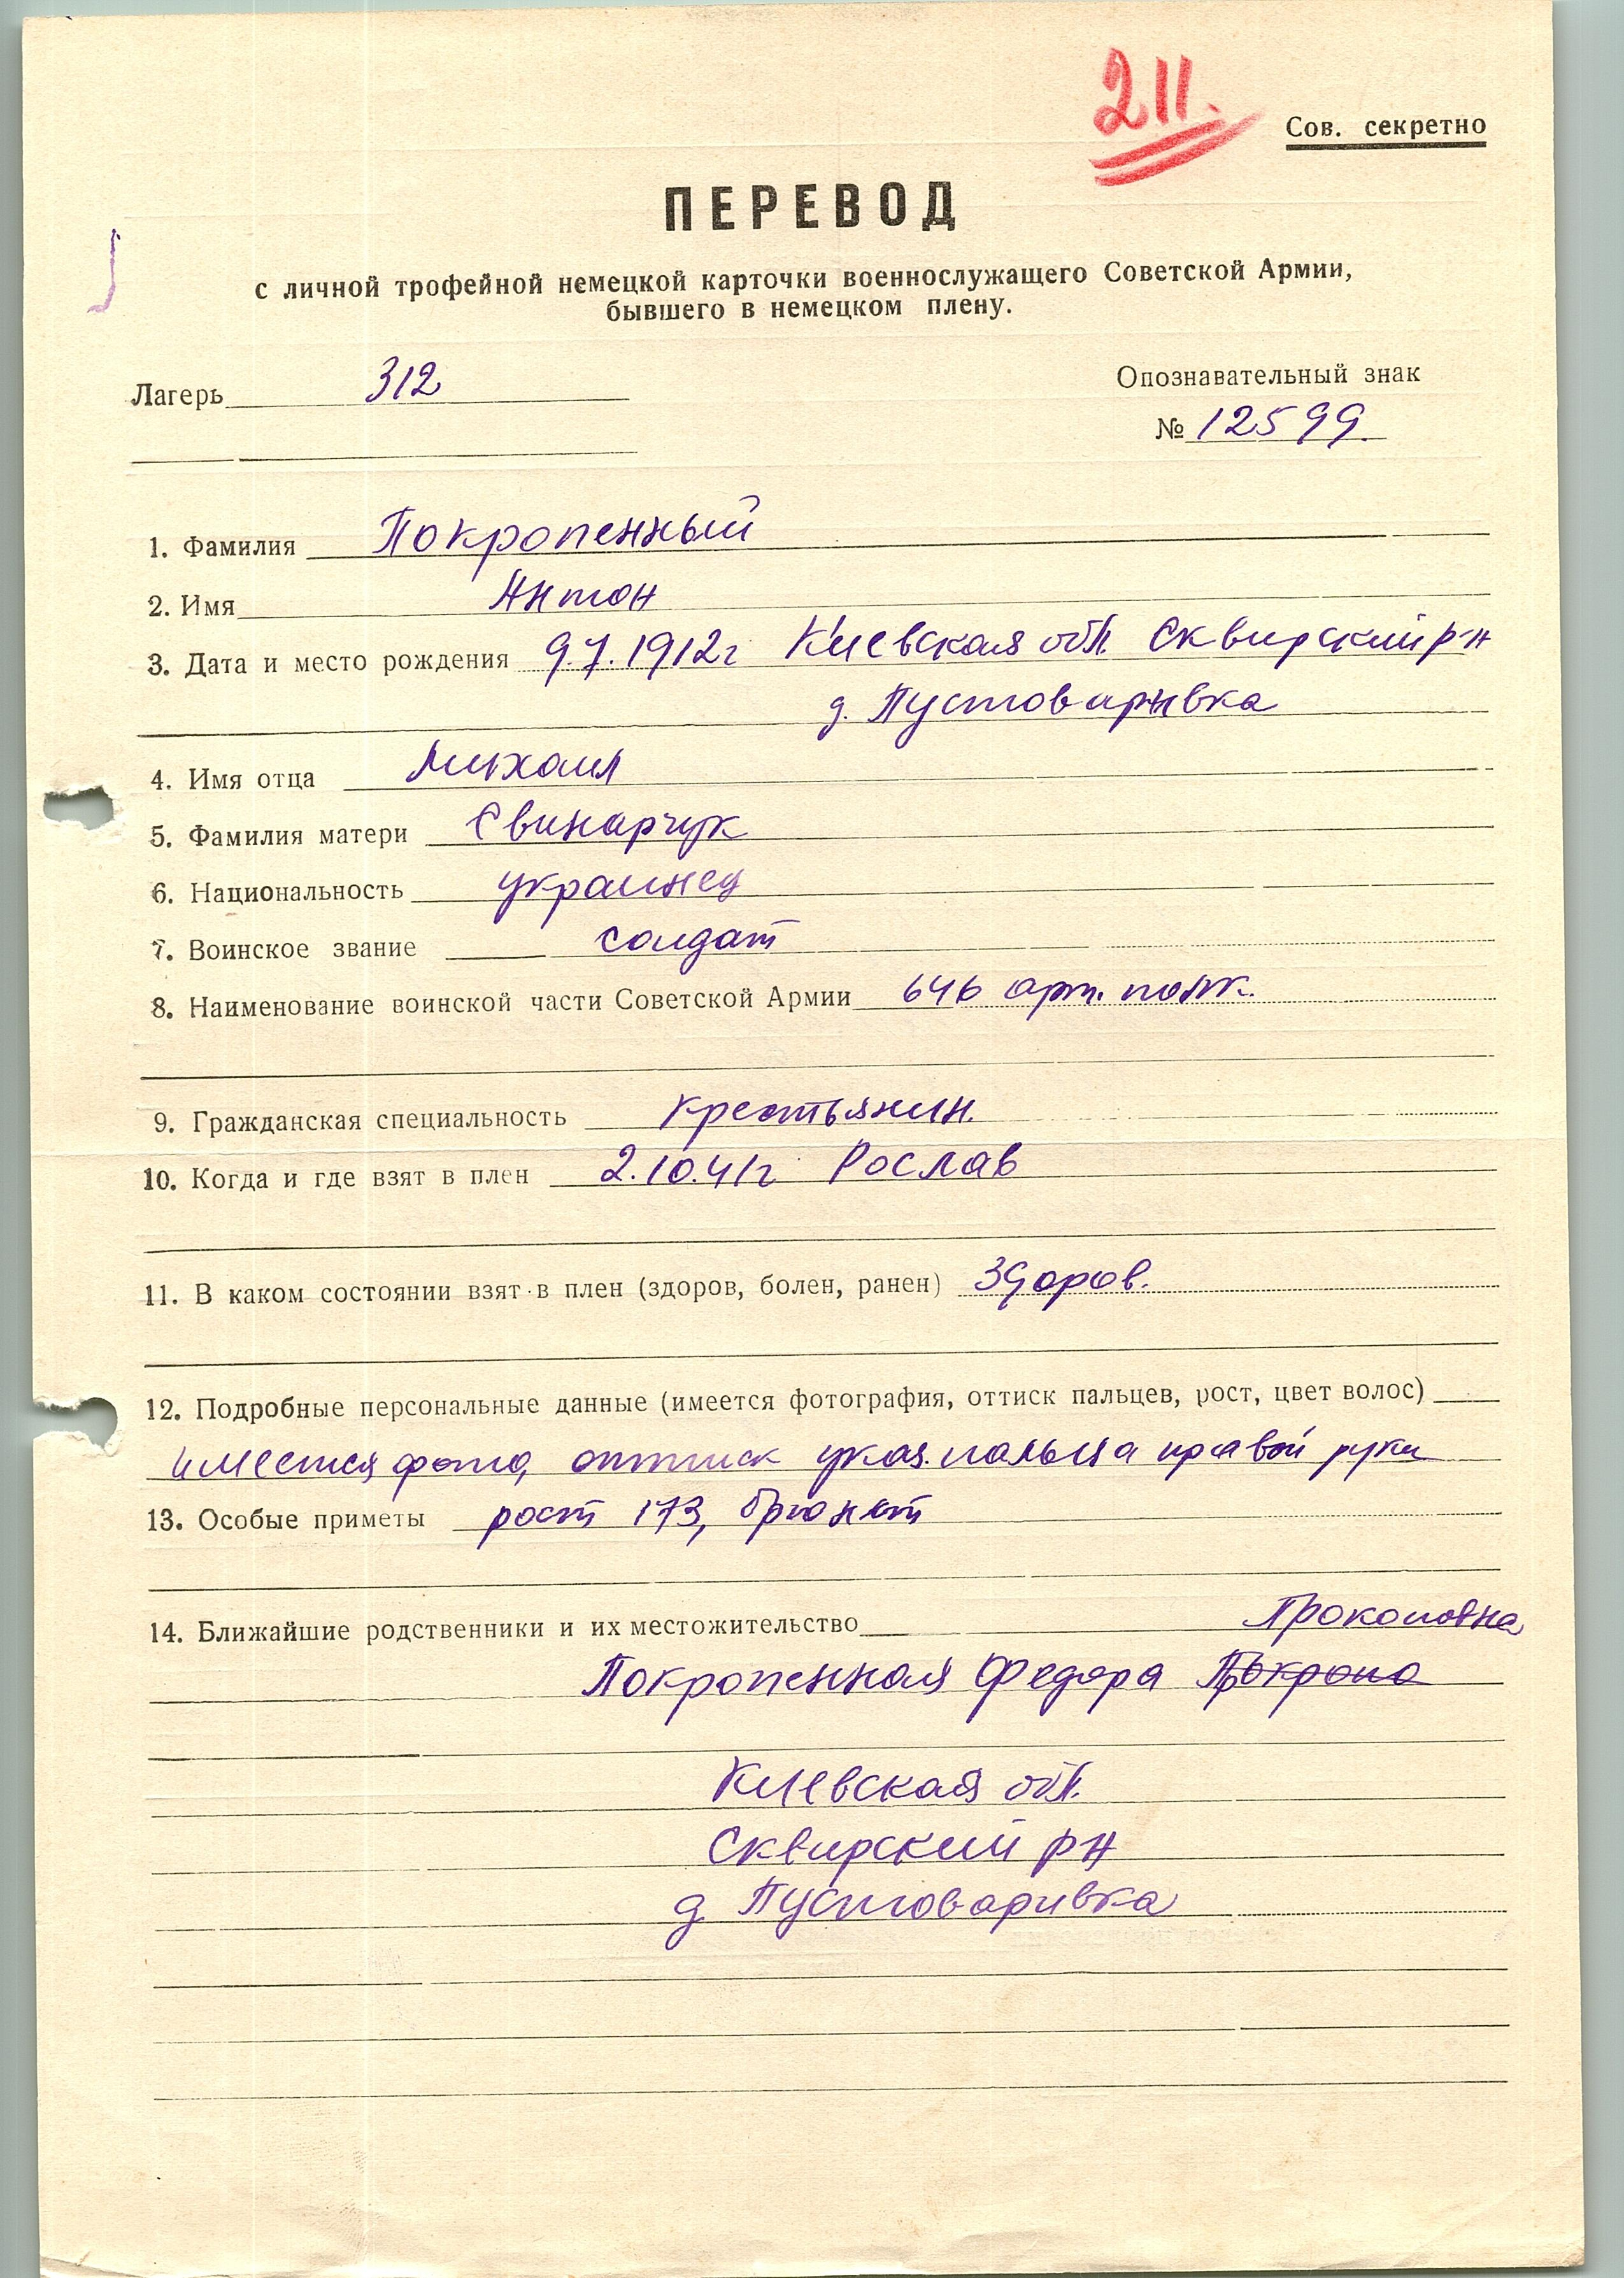 211.
Сов. секретно
ПЕРЕВОД
с личной трофейной немецкой карточки военнослужащего Советской Армии,
бывшего в немецком плену.
Лагерь 312
Опознавательный знак
№ 12599.
1. Фамилия Покропенный
2. Имя Антон
3. Дата и место рождения 9.7.1912г Киевская обл. Сквирский р-н
д. Пустоваривка
4. Имя отца Михаил
5. Фамилия матери Свинарчук
6. Национальность украинец
7. Воинское звание солдат
8. Наименование воинской части Советской Армии 646 арт. полк.
9. Гражданская специальность крестьянин.
10. Когда и где взят в плен 2.10.41г Рослав
11. В каком состоянии взят в плен (здоров, болен, ранен) Здоров.
12. Подробные персональные данные (имеется фотография, оттиск пальцев, рост, цвет волос)
имеется фото, оттиск указ. пальца правой руки
13. Особые приметы рост 173, брюнет
14. Ближайшие родственники и их местожительство Прокоповна
Покропенная Федора
Киевская обл.
Сквирский р-н
д Пустоваривка